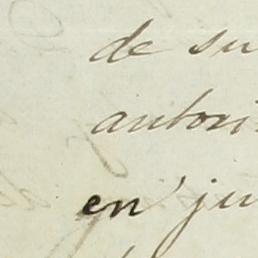 de su
autori
en ju